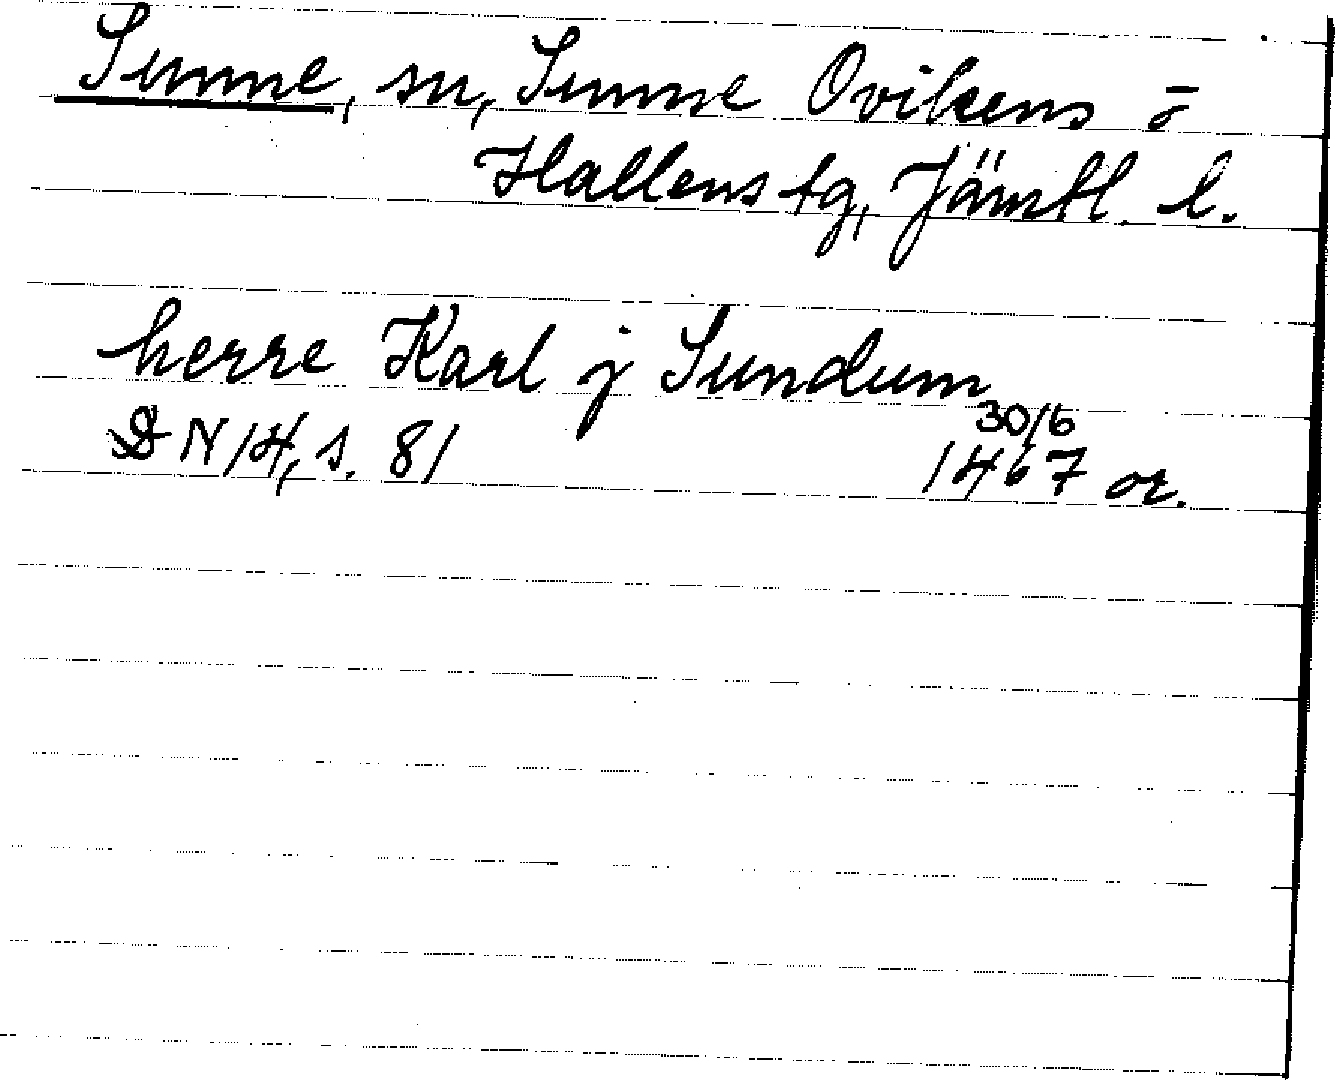 Sunne, sn, Sunne Ovikens o
Hallens tg, Jämtl. l.
herre Karl j Sundum
30/6
DN 14, s. 81 1467 or.